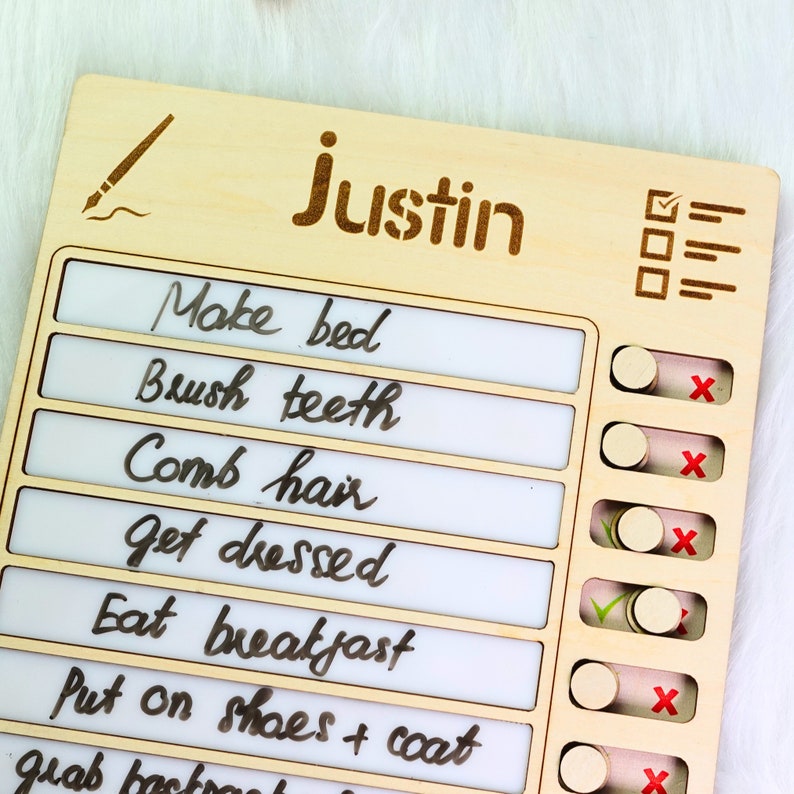 justin
Make bed
Brush teeth
Comb hair
get dressed
Eat breakfast
Put on shoes + coat
grab backpack